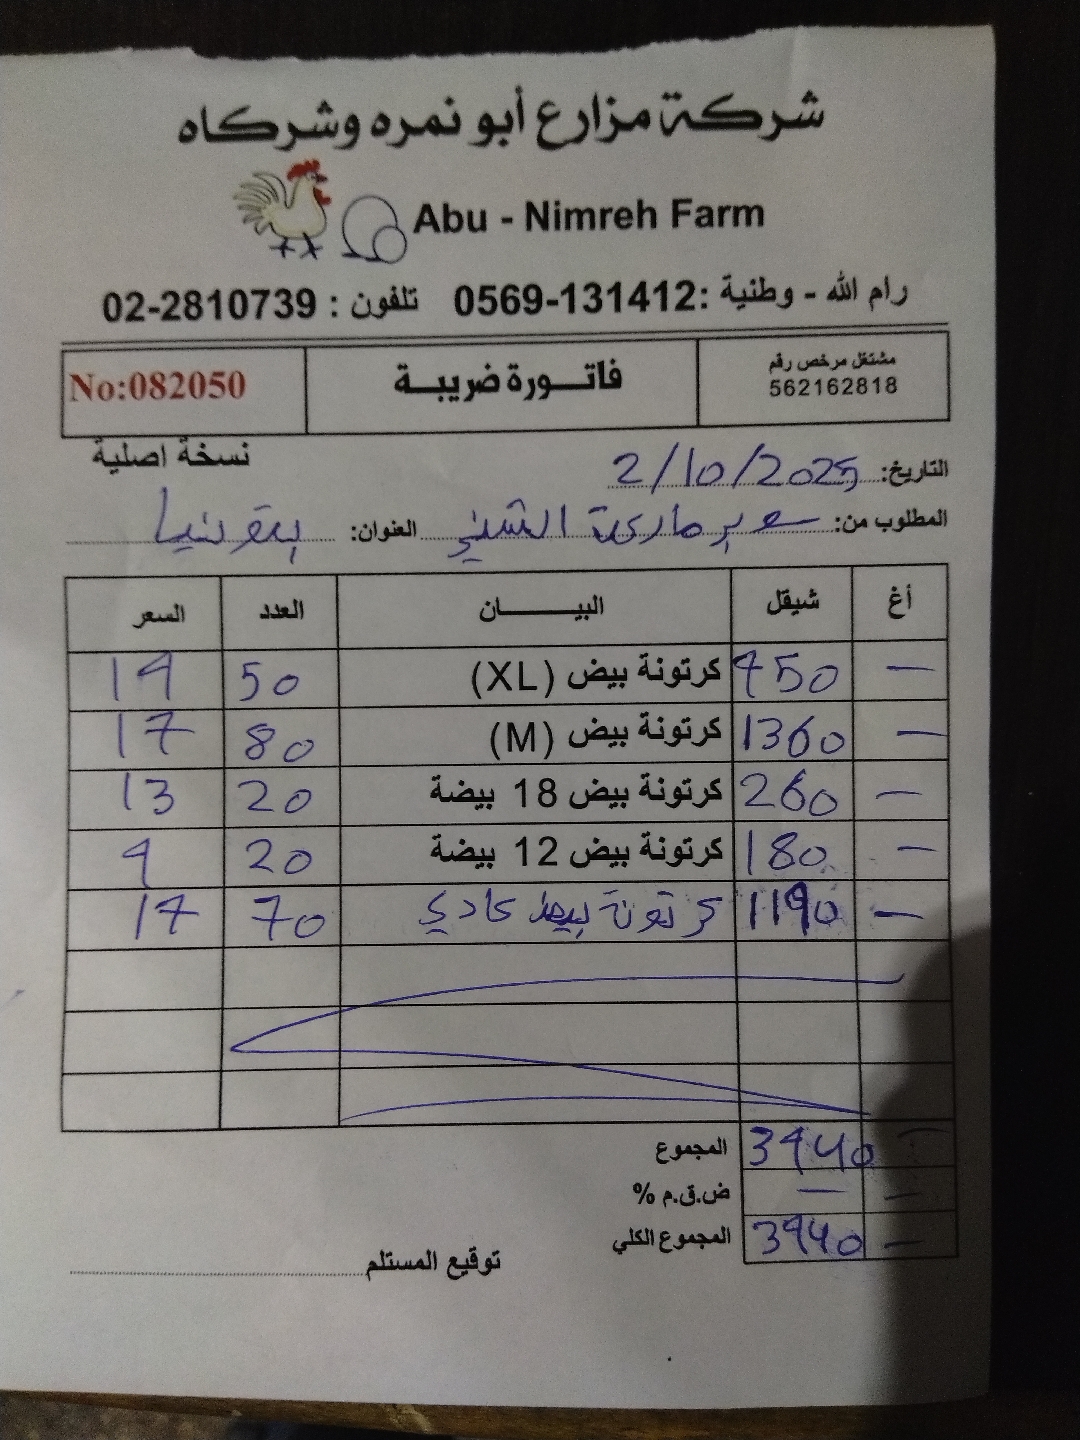 شركة مزارع أبو نمره وشركاه
Abu - Nimreh Farm
رام الله - وطنية :0569-131412 تلفون : 02-2810739
مشتغل مرخص رقم
562162818
فاتـــورة ضريبــة
No:082050
نسخة اصلية
التاريخ: 2/10/2025
المطلوب من: سوبر ماركت الشني العنوان: بيتونيا
أغ شيقل البيـــــان العدد السعر
— 950 كرتونة بيض (XL) 50 19
— 1360 كرتونة بيض (M) 80 17
— 260 كرتونة بيض 18 بيضة 20 13
— 180 كرتونة بيض 12 بيضة 20 9
— 1190 كرتونة بيض عادي 70 17
المجموع 3940 —
ض.ق.م % — —
المجموع الكلي 3940 —
توقيع المستلم